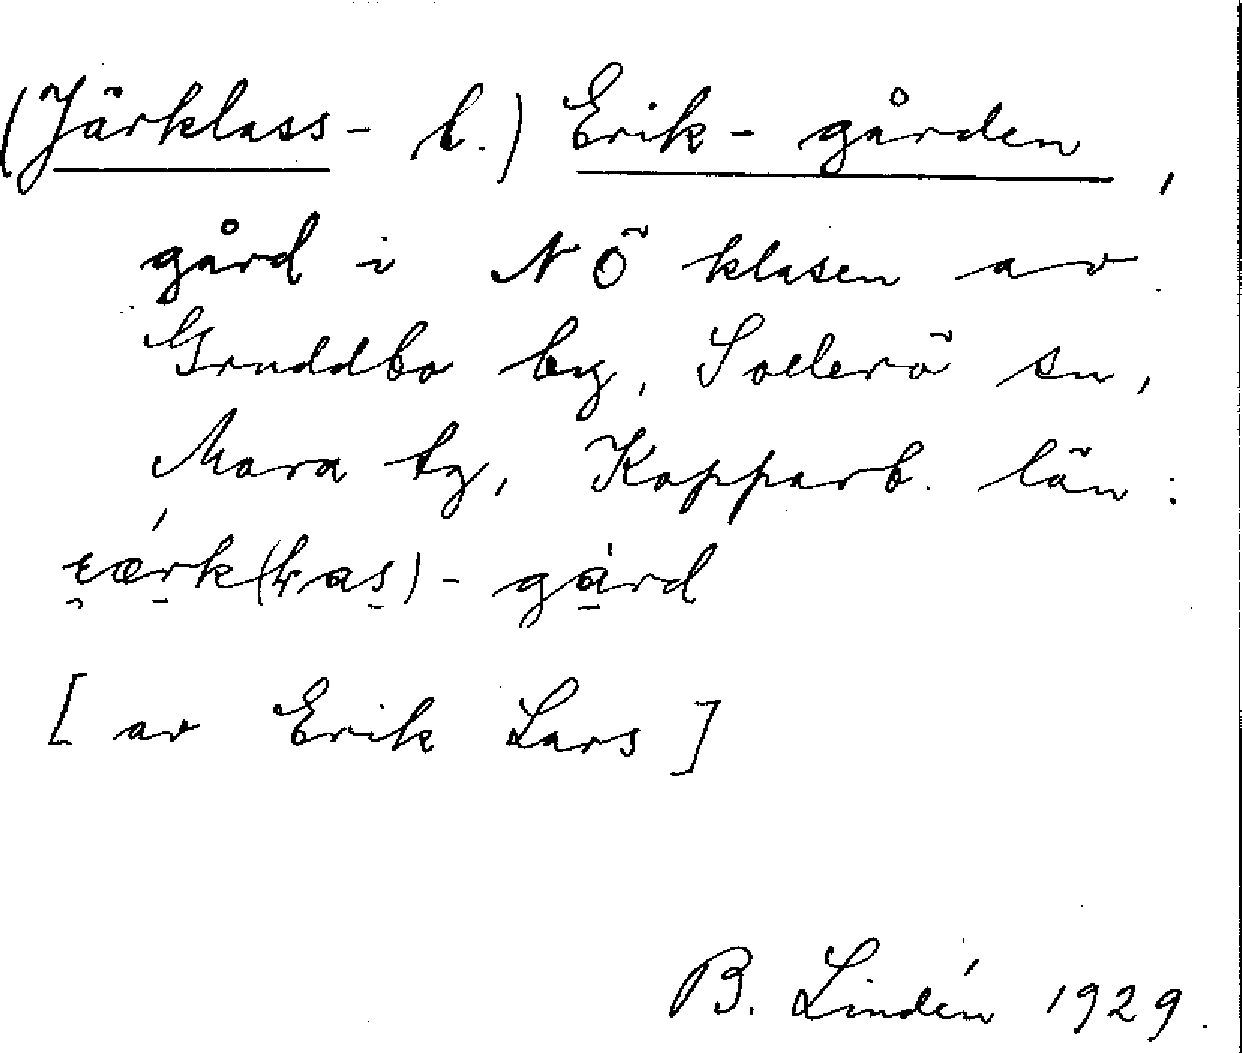 (Järklass- l.) Erik-gården,
gård i NÖ klasen av
Gruddbo by, Sollerö sn,
Mora tg, Kopparb. län:
[av Erik Lars]
B. Lindén 1929.